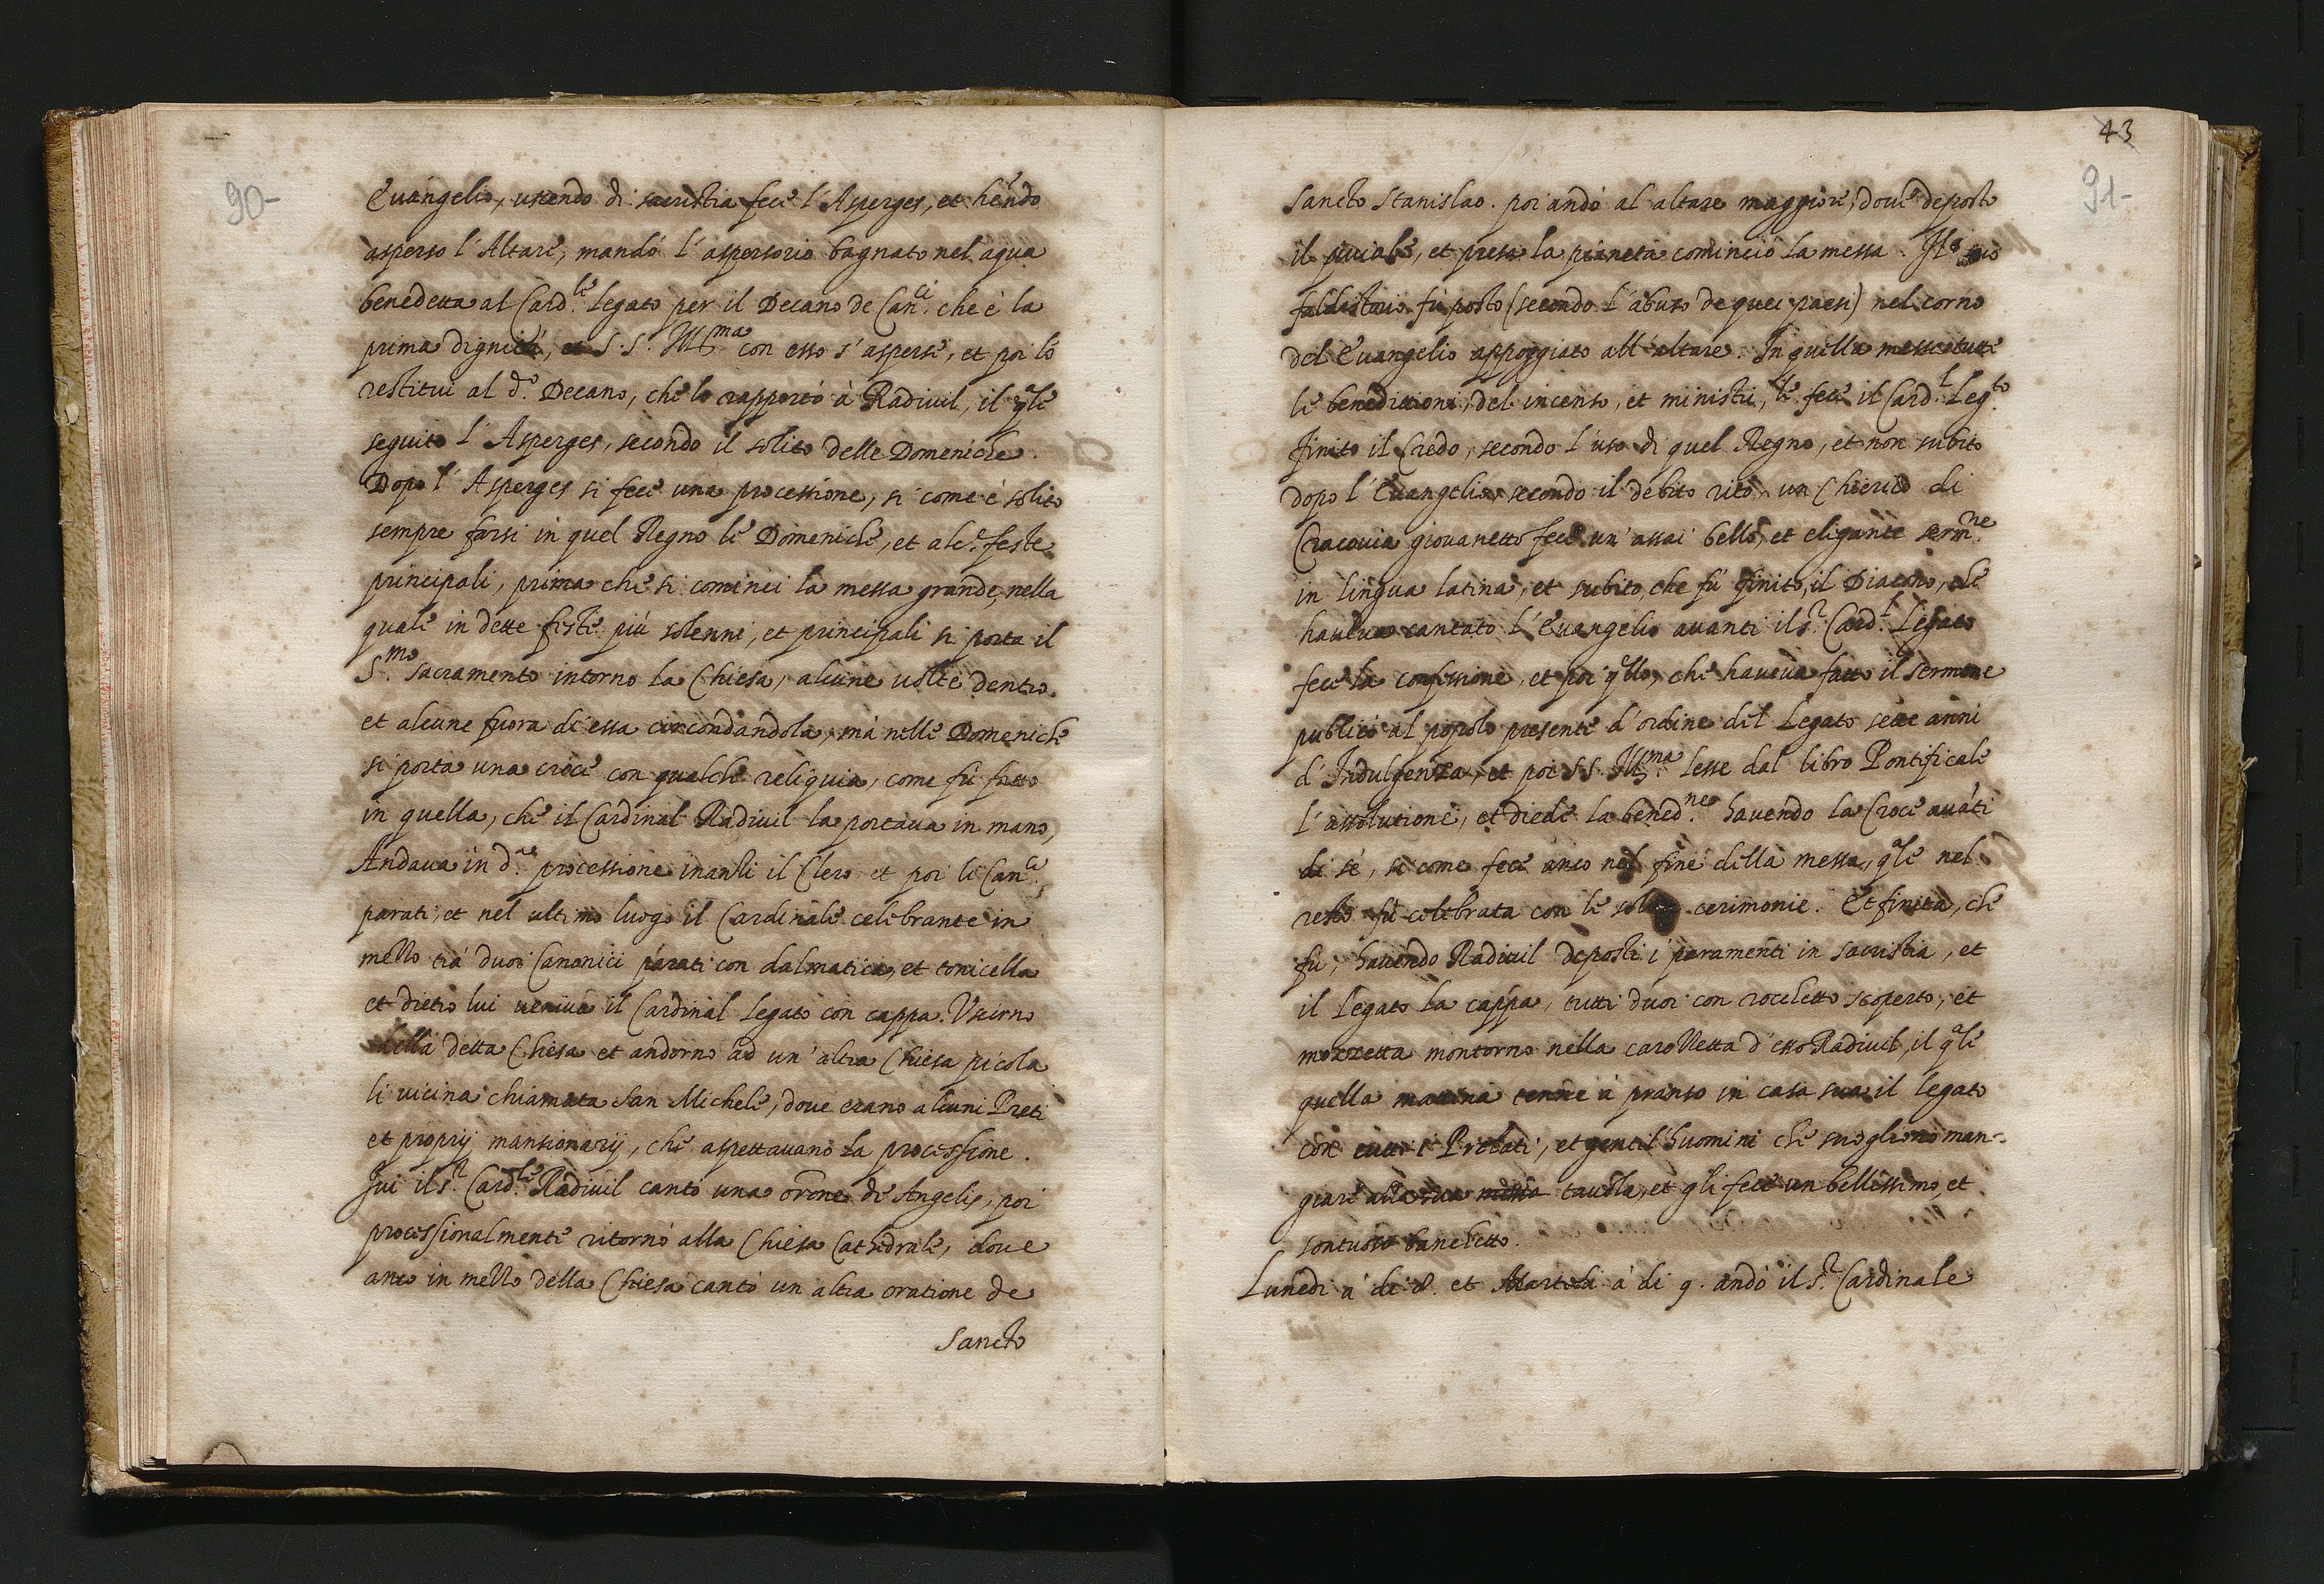 90-
Evangelio, uscendo di sacristia fece l'Asperges, et hẽndo
asperso l'Altare, mandò l'aspersorio bagnato nel aqua
benedetta al Card.le Legato per il Decano de Can.ci che è la
prima dignità, et S.S. Ill.ma con esso s'asperse, et poi lo
restituì al d.o Decano, che lo rapportò à Radivil, il q̃le
seguitò l'Asperges, secondo il solito delle Domeniche.
Dopo l'Asperges si fece una processione, si come è solito
sempre farsi in quel Regno le Domeniche, et alc.e feste
principali, prima che si cominci la messa grande, nella
quale in dette feste più solenni, et principali si porta il
S.mo sacramento intorno la Chiesa, alcune volte dentro
et alcune fuora di essa circondandola, mà nelle Domeniche
si porta una croce con qualche reliquia, come fù fatto
in quella, che il Cardinal Radivil la portava in mano,
Andava in d.a processione inanti il Clero, et poi li Can.ci
parati, et nel ultimo luogo il Cardinale celebrante in
mezzo trà duoi Canonici parati con dalmatica, et tonicella
et dietro lui veniva il Cardinal Legato con cappa. Uscirno
della detta Chiesa et andorno ad un'altra Chiesa picola
li vicina chiamata San Michele, dove erano alcuni Preti
et proprij mansionarij, che aspettavano la processione.
Ivi il S.r Card.le Radivil cantò una orõne de Angelis, poi
processionalmente ritornò alla Chiesa Cathedrale, dove
anco in mezzo della Chiesa cantò un altra oratione de
Sancto
43
91-
Sancto Stanislao. poi andò al altare maggiore, dove deposto
il piviale, et presa la pianeta cominciò la messa. Il suo
faldistorio fù posto (secondo l'abuso de quei paesi) nel corno
del Evangelio appoggiato all'altare. In quella messa tutte
le benedittioni, del incenso, et ministri, le fece il Card.l Leg.to
finito il Credo, secondo l'uso di quel Regno, et non subito
dopo l'Evangelio, secondo il debito rito, un Chierico di
Cracovia giovanetto fece un'assai bello, et eligante serm.ne
in lingua latina, et subito che fù finito, il Diacono, che
haveva cantato l'Evangelio avanti il S.r Card.l Legato
fece la confessione, et poi q̃llo, che haveva fatto il sermone
publicò al popolo presente d'ordine del Legato sette anni
d'Indulgenza, et poi S.S. Ill.ma lesse dal libro Pontificale
l'assolutione, et diede la bened.ne havendo la Croce avãti
di sé, si come fece anco nel fine della messa, q̃le nel
resto fù celebrata con le solite cerimonie. Et finita, che
fù, havendo Radivil deposti i paramenti in sacristia, et
il Legato la cappa, tutti duoi con rocchetto scoperto, et
mozzetta montorno nella carozzetta d'esso Radivil, il q̃le
quella matina tenne à pranso in casa sua il legato
con tutti i Prelati, et gentil'huomini che sogliono man-
giare alla sua tavola, et gli fece un bellissimo, et
sontuoso banchetto.
Lunedi à di 8. et Martedi à di 9. andò il S.r Cardinale